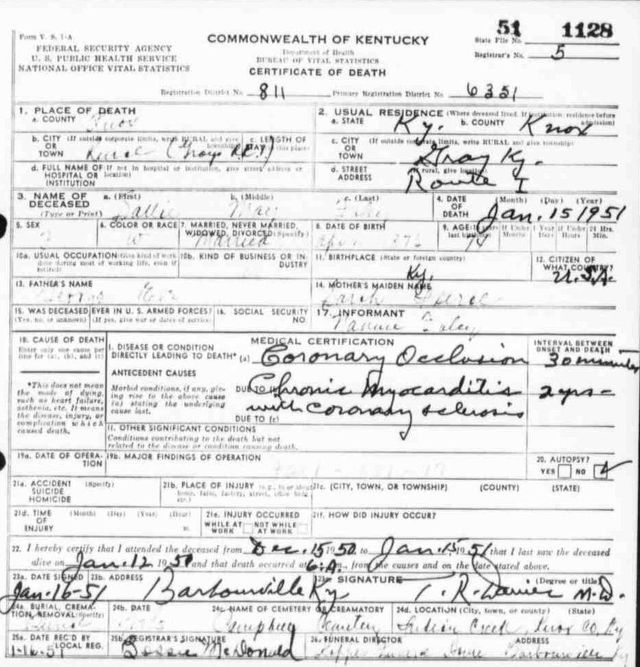 51 1128
Form V. S. 1-A
FEDERAL SECURITY AGENCY
U. S. PUBLIC HEALTH SERVICE
NATIONAL OFFICE VITAL STATISTICS
COMMONWEALTH OF KENTUCKY
Department of Health
BUREAU OF VITAL STATISTICS
CERTIFICATE OF DEATH
State File No.
Registrar's No. 5
Registration District No. 811 Primary Registration District No. 6351
1. PLACE OF DEATH
a. COUNTY Knox
2. USUAL RESIDENCE (Where deceased lived. If institution: residence before admission)
a. STATE Ky. b. COUNTY Knox
b. CITY (If outside corporate limits, write RURAL and give township)
OR
TOWN
c. LENGTH OF
c. CITY (If outside corporate limits, write RURAL and give township)
OR
TOWN Gray Ky.
d. FULL NAME OF (If not in hospital or institution, give street address or location)
HOSPITAL OR
INSTITUTION
d. STREET (If rural, give location)
ADDRESS Route 1
3. NAME OF a. (First) b. (Middle) c. (Last)
DECEASED
(Type or Print) Sallie Mae
4. DATE (Month) (Day) (Year)
OF
DEATH Jan. 15 1951
5. SEX
6. COLOR OR RACE W
7. MARRIED, NEVER MARRIED, WIDOWED, DIVORCED (Specify) Married
8. DATE OF BIRTH
9. AGE
10a. USUAL OCCUPATION (Give kind of work done during most of working life, even if retired)
10b. KIND OF BUSINESS OR INDUSTRY
11. BIRTHPLACE (State or foreign country) Ky.
12. CITIZEN OF WHAT COUNTRY? U.S.A.
13. FATHER'S NAME
George
14. MOTHER'S MAIDEN NAME
Sarah
15. WAS DECEASED EVER IN U. S. ARMED FORCES?
(Yes, no, or unknown) (If yes, give war or dates of service)
16. SOCIAL SECURITY NO.
17. INFORMANT
18. CAUSE OF DEATH
Enter only one cause per line for (a), (b), and (c)
MEDICAL CERTIFICATION
INTERVAL BETWEEN ONSET AND DEATH
I. DISEASE OR CONDITION
DIRECTLY LEADING TO DEATH* (a) Coronary Occlusion 30 minutes
*This does not mean the mode of dying, such as heart failure, asthenia, etc. It means the disease, injury, or complication which caused death.
ANTECEDENT CAUSES
Morbid conditions, if any, giving rise to the above cause (a) stating the underlying cause last.
DUE TO (b) Chronic Myocarditis 2 yrs
with coronary sclerosis
DUE TO (c)
II. OTHER SIGNIFICANT CONDITIONS
Conditions contributing to the death but not
related to the disease or condition causing death.
19a. DATE OF OPERATION
19b. MAJOR FINDINGS OF OPERATION
20. AUTOPSY?
YES NO
21a. ACCIDENT (Specify)
SUICIDE
HOMICIDE
21b. PLACE OF INJURY
21c. (CITY, TOWN, OR TOWNSHIP) (COUNTY) (STATE)
21d. TIME (Month) (Day) (Year) (Hour)
OF
INJURY
21e. INJURY OCCURRED
WHILE AT WORK NOT WHILE AT WORK
21f. HOW DID INJURY OCCUR?
22. I hereby certify that I attended the deceased from Dec. 15 1950, to Jan. 15 1951 that I last saw the deceased
alive on Jan. 12 1951 and that death occurred at 6:A., from the causes and on the date stated above.
23a. DATE SIGNED
Jan-16-51
23b. ADDRESS
Barbourville Ky
23c. SIGNATURE (Degree or title)
M.D.
24a. BURIAL, CREMATION, REMOVAL (Specify)
24b. DATE
24c. NAME OF CEMETERY OR CREMATORY
Campbell Cemetery
24d. LOCATION (City, town, or county) (State)
Indian Creek Knox Co. Ky
25a. DATE REC'D BY LOCAL REG.
1-16-51
25b. REGISTRAR'S SIGNATURE
Bessie McDonald
26. FUNERAL DIRECTOR
Barbourville Ky